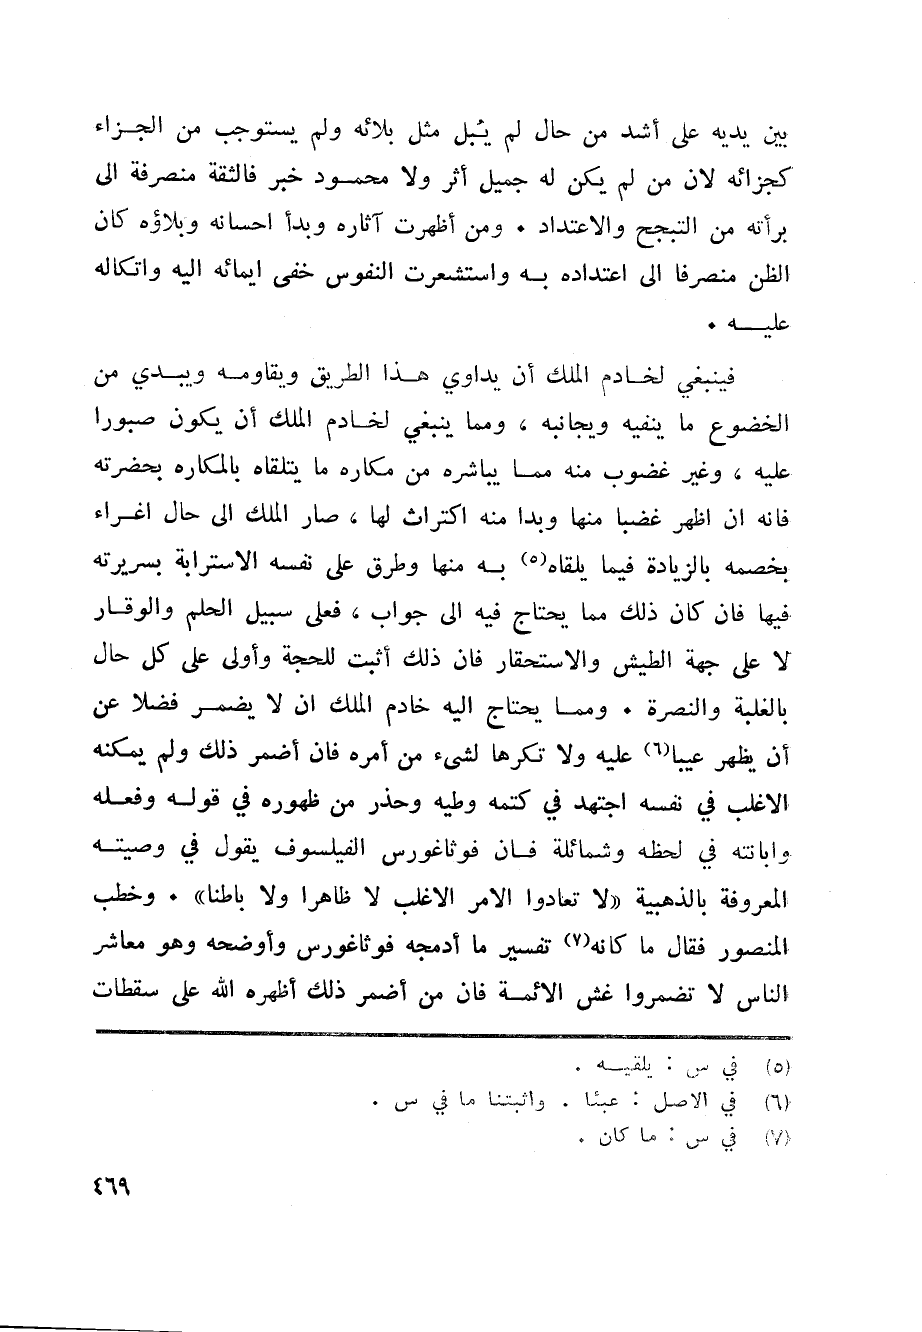 بين يديه على أشد من حال لم يُبل مثل بلائه ولم يستوجب من الجزاء
كجزائه لان من لم يكن له جميل أثر ولا محمود خبر فالثقة منصرفة الى
برأته من التبجح والاعتداد • ومن أظهرت آثاره وبدأ احسانه وبلاؤه كان
الظن منصرفا الى اعتداده به واستشعرت النفوس خفى ايمائه اليه واتكاله
عليه •
فينبغي لخادم الملك أن يداوي هذا الطريق ويقاومه ويبدي من
الخضوع ما ينفيه ويجانبه ، ومما ينبغي لخادم الملك أن يكون صبورا
عليه ، وغير غضوب منه مما يباشره من مكاره ما يتلقاه بالمكاره بحضرته
فانه ان اظهر غضبا منها وبدا منه اكتراث لها ، صار الملك الى حال اغراء
بخصمه بالزيادة فيما يلقاه(٥) به منها وطرق على نفسه الاسترابة بسريرته
فيها فان كان ذلك مما يحتاج فيه الى جواب ، فعلى سبيل الحلم والوقار
لا على جهة الطيش والاستحقار فان ذلك أثبت للحجة وأولى على كل حال
بالغلبة والنصرة • ومما يحتاج اليه خادم الملك ان لا يضمر فضلا عن
أن يظهر عيبا(٦) عليه ولا تكرها لشىء من أمره فان أضمر ذلك ولم يمكنه
الاغلب في نفسه اجتهد في كتمه وطيه وحذر من ظهوره في قوله وفعله
وابانته في لحظه وشمائلة فان فوثاغورس الفيلسوف يقول في وصيته
المعروفة بالذهبية «لا تعادوا الامر الاغلب لا ظاهرا ولا باطنا» • وخطب
المنصور فقال ما كانه(٧) تفسير ما أدمجه فوثاغورس وأوضحه وهو معاشر
الناس لا تضمروا غش الائمة فان من أضمر ذلك أظهره الله على سقطات
(٥) في س : يلقيه .
(٦) في الاصل : عبئا . واثبتنا ما في س .
(٧) في س : ما كان .
٤٦٩